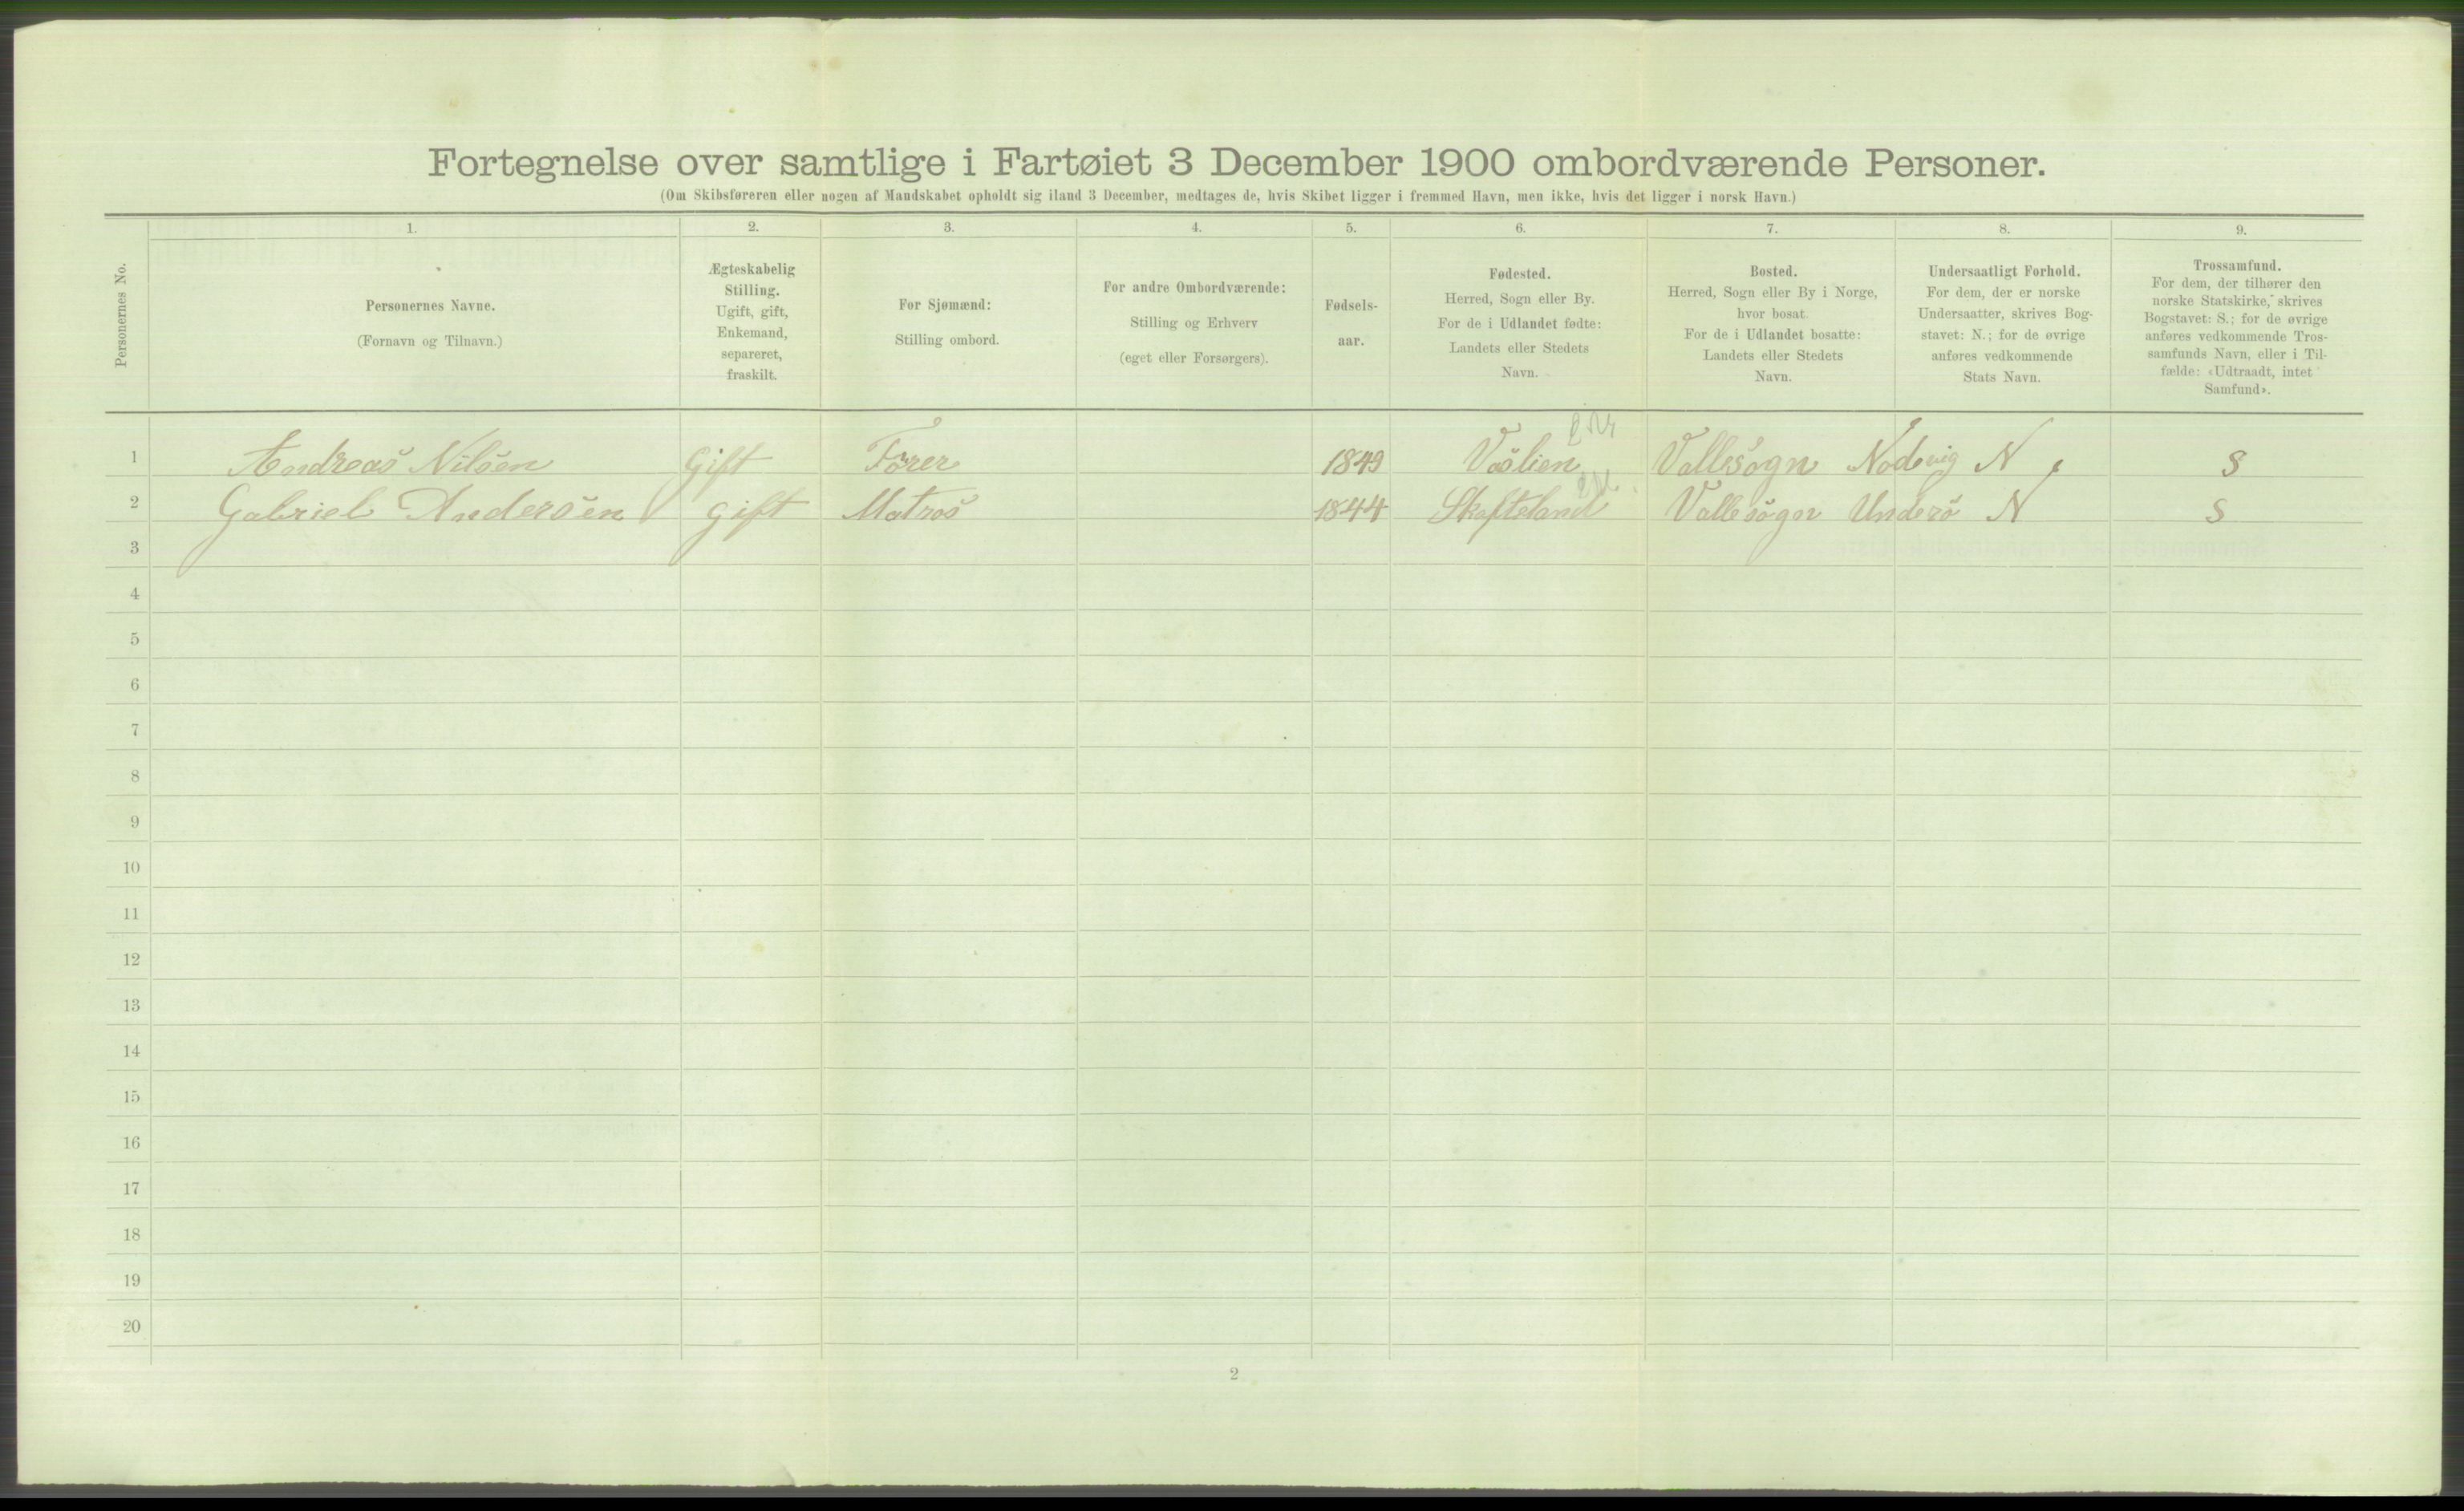 Fortegnelse over samtlige i Fartøiet 3 December 1900 ombordværende Personer.
(Om Skibsføreren eller nogen af Mandskabet opholdt sig iland 3 December, medtages de, hvis Skibet ligger i fremmed Havn, men ikke, hvis det ligger i norsk Havn.)
Personernes No.
1. 2. 3. 4. 5. 6. 7. 8. 9.
Personernes Navne.
(Fornavn og Tilnavn.)
Ægteskabelig
Stilling.
Ugift, gift,
Enkemand,
separeret,
fraskilt.
For Sjømænd:
Stilling ombord.
For andre Ombordværende:
Stilling og Erhverv
(eget eller Forsørgers).
Fødsels-
aar.
Fødested.
Herred, Sogn eller By.
For de i Udlandet fødte:
Landets eller Stedets
Navn.
Bosted.
Herred, Sogn eller By i Norge,
hvor bosat.
For de i Udlandet bosatte:
Landets eller Stedets
Navn.
Undersaatligt Forhold.
For dem, der er norske
Undersaatter, skrives Bog-
stavet: N.; for de øvrige
anføres vedkommende
Stats Navn.
Trossamfund.
For dem, der tilhører den
norske Statskirke, skrives
Bogstavet: S.; for de øvrige
anføres vedkommende Tros-
samfunds Navn, eller i Til-
fælde: «Udtraadt, intet
Samfund».
1 Andreas Nilsen Gift Fører 1849 Vaslien Vallesogn Nodevig N S
2 Gabriel Andersen gift Matros 1844 Skafteland Vallesogn Underø N S
3
4
5
6
7
8
9
10
11
12
13
14
15
16
17
18
19
20
2